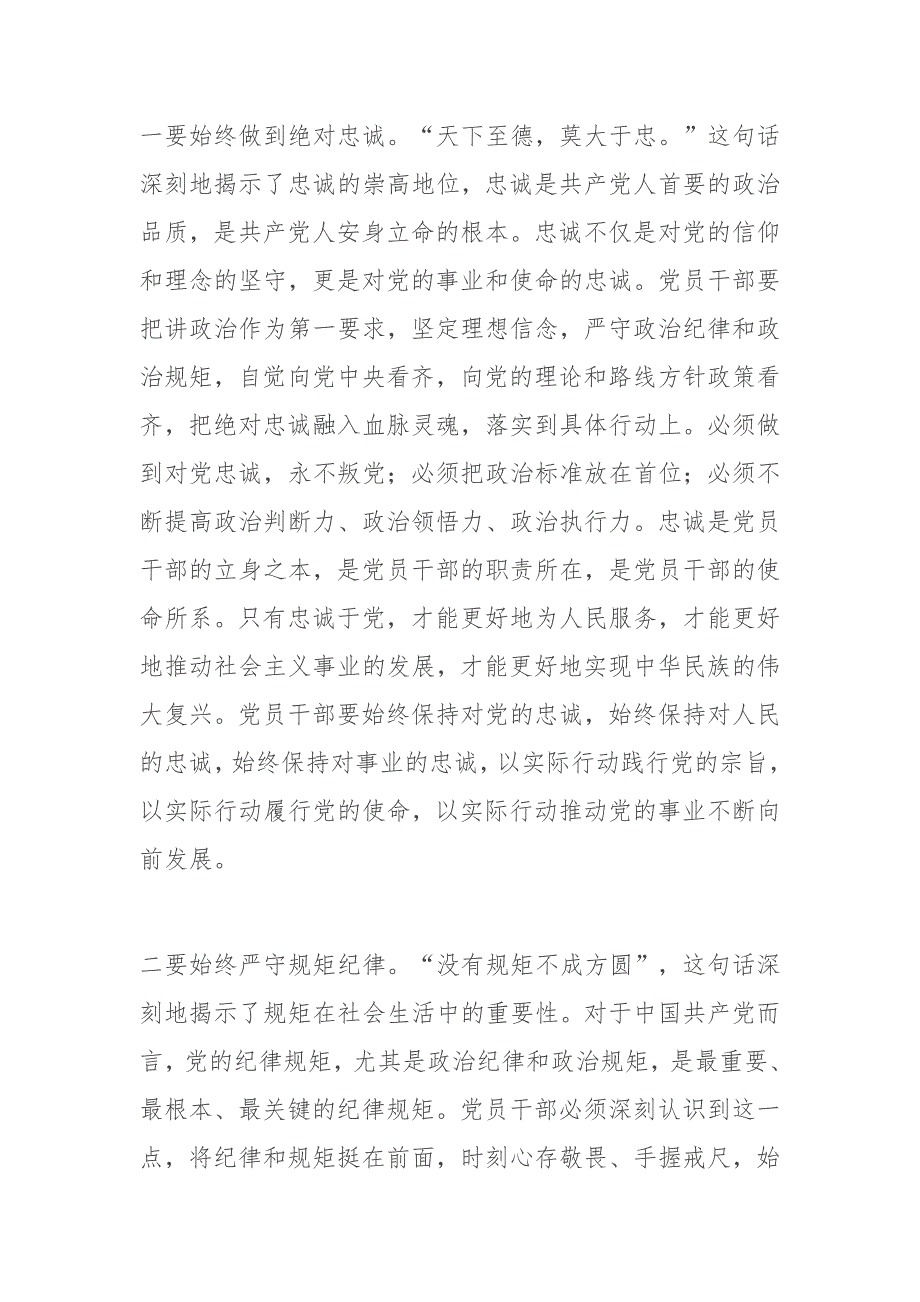 一要始终做到绝对忠诚。“天下至德，莫大于忠。”这句话
深刻地揭示了忠诚的崇高地位，忠诚是共产党人首要的政治
品质，是共产党人安身立命的根本。忠诚不仅是对党的信仰
和理念的坚守，更是对党的事业和使命的忠诚。党员干部要
把讲政治作为第一要求，坚定理想信念，严守政治纪律和政
治规矩，自觉向党中央看齐，向党的理论和路线方针政策看
齐，把绝对忠诚融入血脉灵魂，落实到具体行动上。必须做
到对党忠诚，永不叛党；必须把政治标准放在首位；必须不
断提高政治判断力、政治领悟力、政治执行力。忠诚是党员
干部的立身之本，是党员干部的职责所在，是党员干部的使
命所系。只有忠诚于党，才能更好地为人民服务，才能更好
地推动社会主义事业的发展，才能更好地实现中华民族的伟
大复兴。党员干部要始终保持对党的忠诚，始终保持对人民
的忠诚，始终保持对事业的忠诚，以实际行动践行党的宗旨，
以实际行动履行党的使命，以实际行动推动党的事业不断向
前发展。
二要始终严守规矩纪律。“没有规矩不成方圆”，这句话深
刻地揭示了规矩在社会生活中的重要性。对于中国共产党而
言，党的纪律规矩，尤其是政治纪律和政治规矩，是最重要、
最根本、最关键的纪律规矩。党员干部必须深刻认识到这一
点，将纪律和规矩挺在前面，时刻心存敬畏、手握戒尺，始